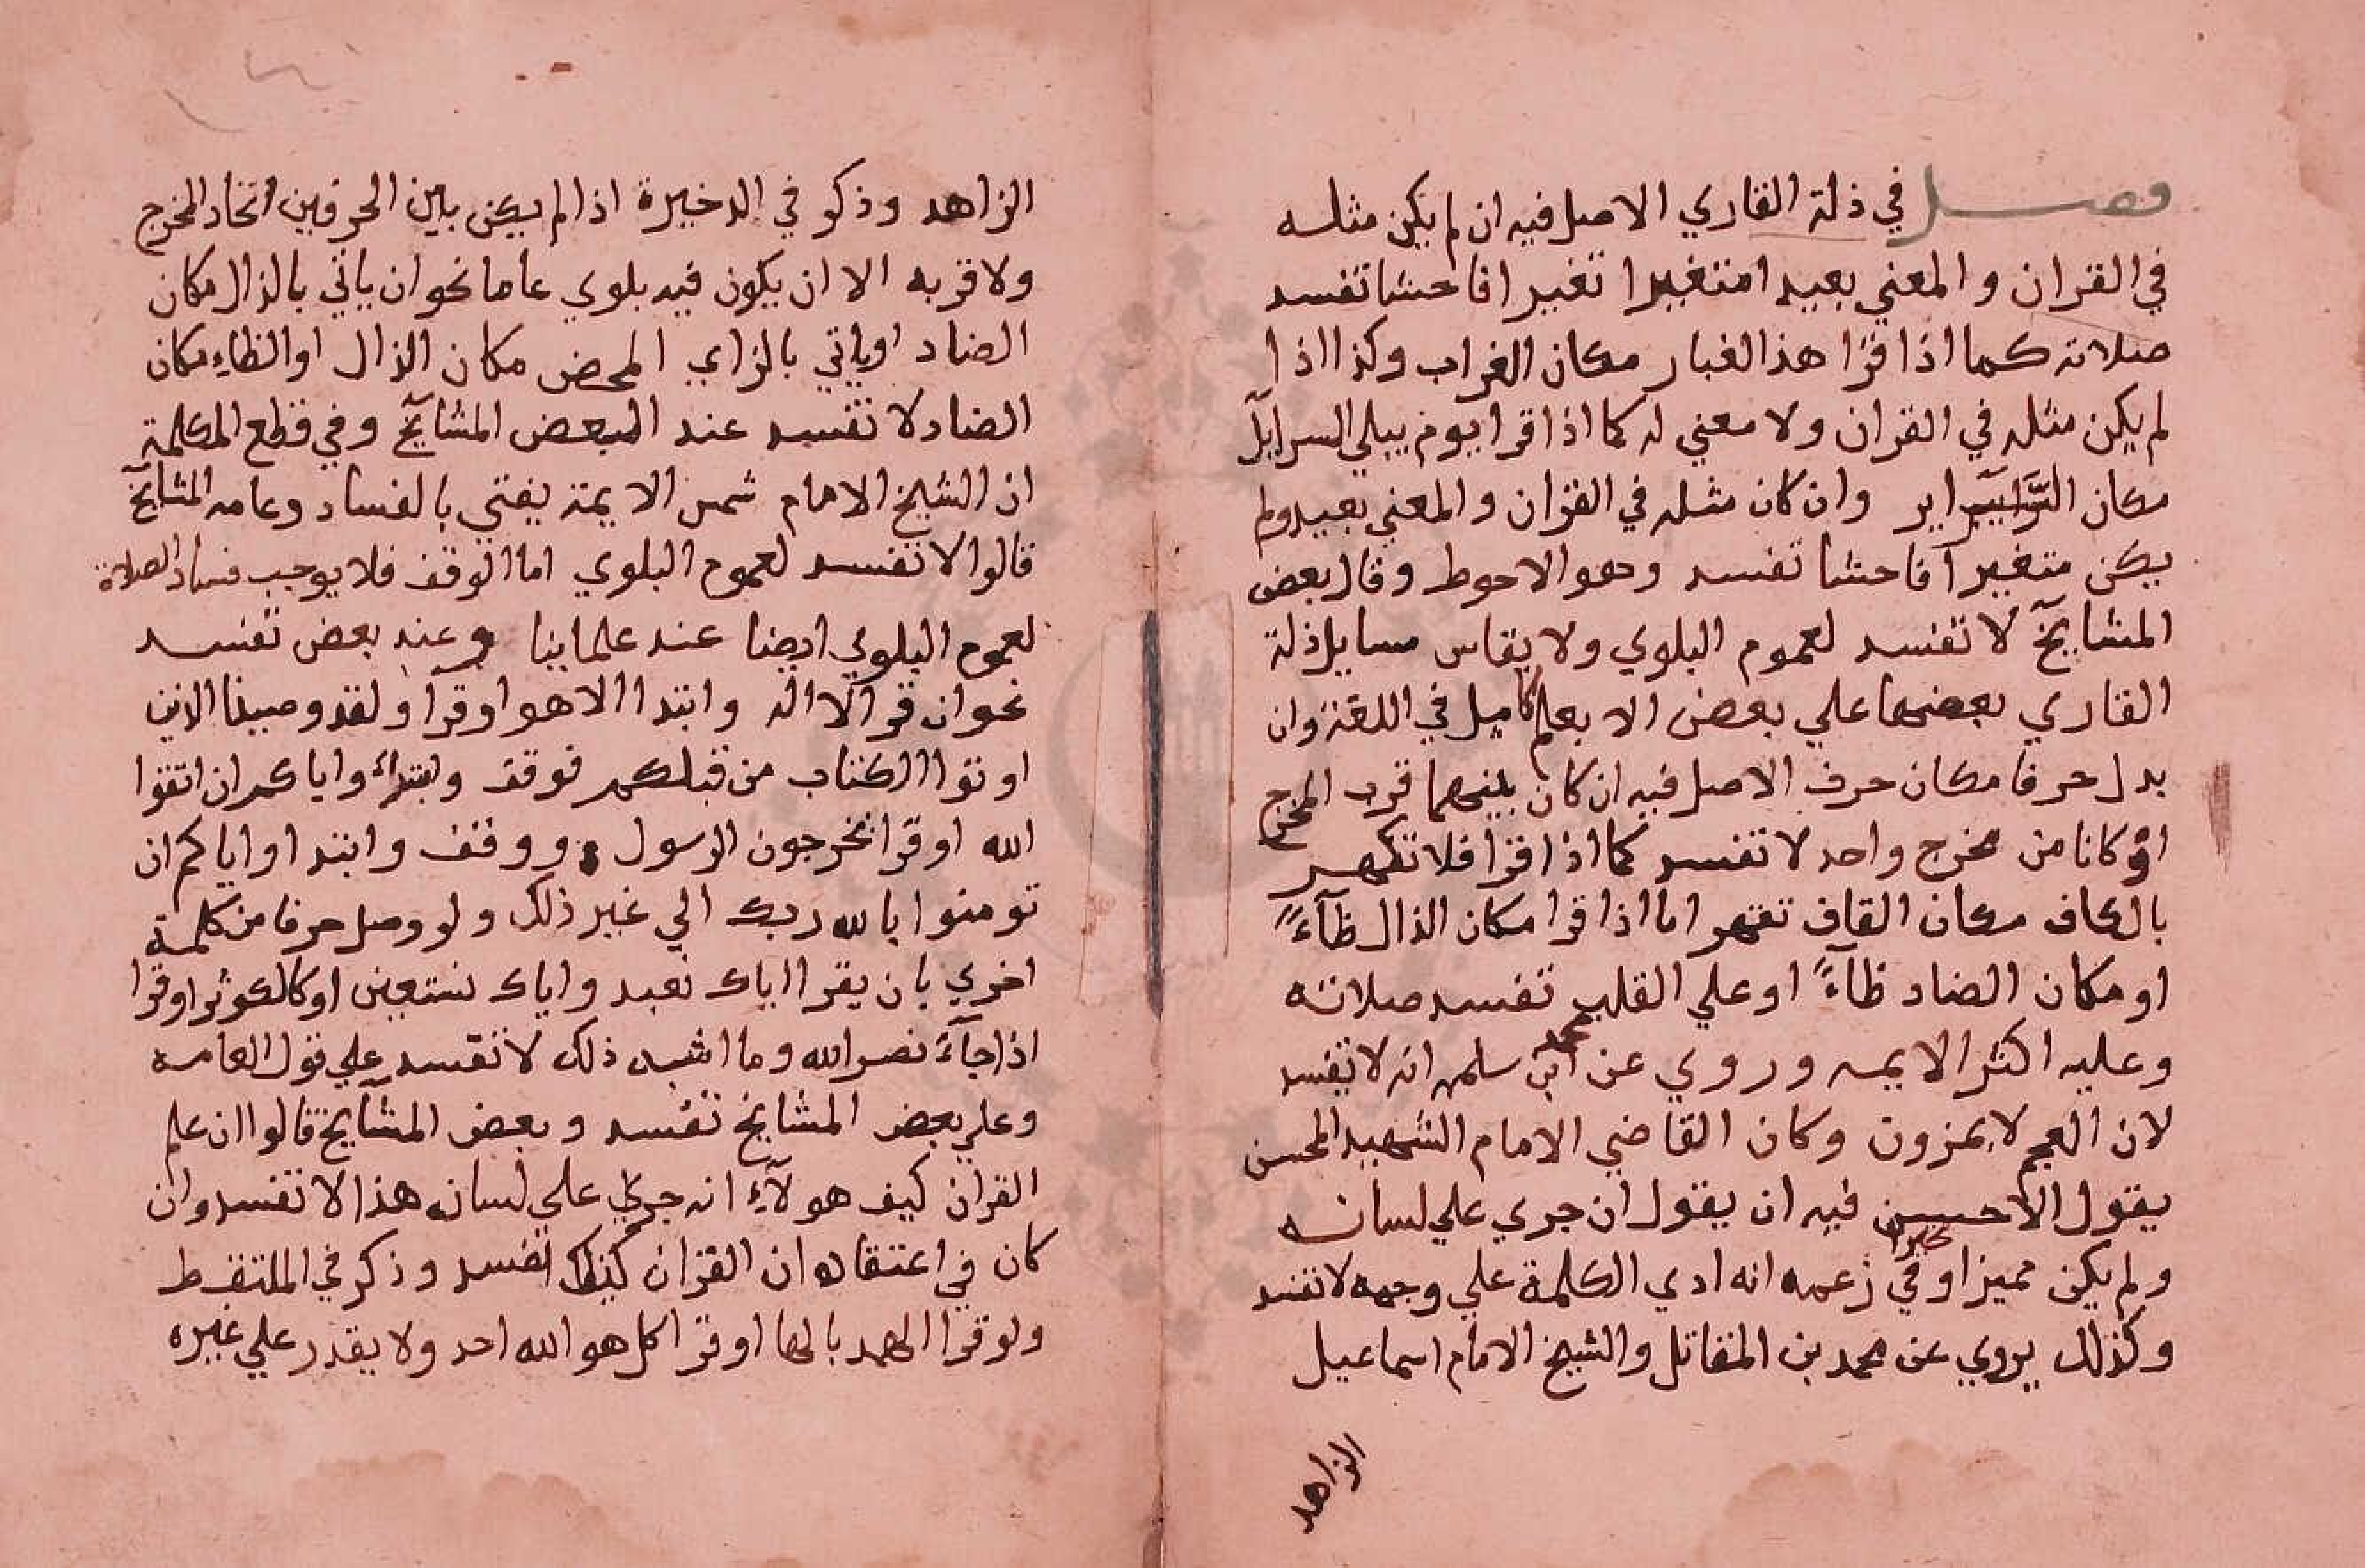 فصل في ذلة القاري الاصل فيه ان لم يكن مثله
في القران والمعني بعيد امتغيرا تغيرا فاحشا تفسد
صلاته كما اذا قرا هذا الغبار مكان الغراب وكذا اذا
لم يكن مثله في القران ولا معني له كما اذا قرا يوم يبلي السرايل
مكان السراير وان كان مثله في القران والمعني بعيد ولم
يكن متغيرا فاحشا تفسد وهو الاحوط وقال بعض
المشايخ لا تفسد لعموم البلوي ولا يقاس مسايل ذلة
القاري بعضها علي بعض الا بعلم كامل في اللغة وان
بدل حرفا مكان حرف الاصل فيه ان كان بينهما قرب المخرج
او كانا من مخرج واحد لا تفسد كما اذا قرا فلا تكهر
بالكاف مكان القاف تقهر اما اذا قرا مكان الذال ظآءً
او مكان الضاد ظآءً او علي القلب تفسد صلاته
وعليه اكثر الايمه وروي عن محمد ابن سلمه انه لا تفسد
لان العجم لا يمزون وكان القاضي الامام الشهيد المحسن
يقول الاحسن فيه ان يقول ان جري علي لسانه
ولم يكن مميزا وفي زعمه انه ادي الكلمة علي وجهه لا تفسد
وكذلك يروي عن محمد بن المقاتل والشيخ الامام اسماعيل
الزاهد
الزاهد وذكر في الدخيرة اذا لم يكن بين الحرفين اتحاد المخرج
ولا قربه الا ان يكون فيه بلوي عاما نحو ان ياتي بالذال مكان
الضاد او ياتي بالزاي المحض مكان الذال او الظاء مكان
الضاد لا تفسد عند البعض المشايخ وفي قطع الكلمة
ان الشيخ الامام شمس الايمة يفتي بالفساد وعامه المشايخ
قالوا لا تفسد لعموم البلوي اما الوقف فلا يوجب فساد الصلاة
لعموم البلوي ايضا عند علماينا وعند بعض تفسد
نحو ان قرا لا اله وابتدا الا هو او قرا ولقد وصينا الذين
اوتوا الكتاب من قبلكم فوقف وابتداء واياكم ان اتقوا
الله او قرا يخرجون الرسول ووقف وابتدا واياكم ان
تومنوا بالله ربك الي غير ذلك ولو وصل حرفا من كلمة
اخري بان يقرا اياك نعبد واياك نستعين او كالكوثر او قرا
اذا جآءَ نصر الله وما اشبه ذلك لا تفسد علي قول العامه
وعلي بعض المشايخ تفسد وبعض المشآيخ قالوا ان علم
القران كيف هولآءِ انه جري علي لسانه هذا لا تفسد وان
كان في اعتقاده ان القران كذلك تفسد وذكر في الملتقط
ولو قرا الهمد بالها او قرا كل هو الله احد ولا يقدر علي غيره